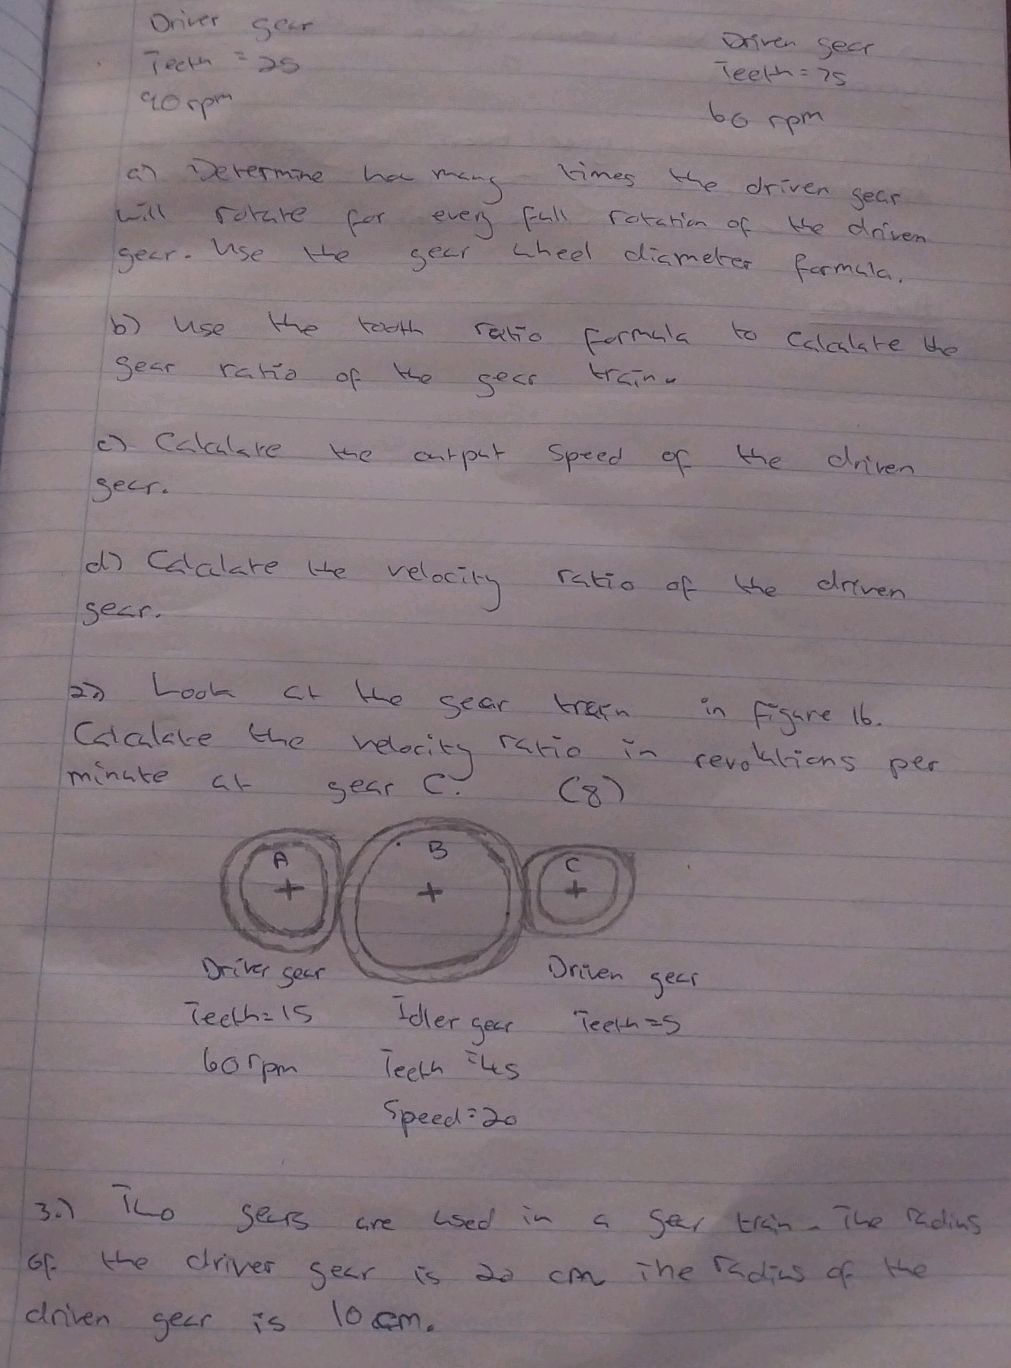 Driver gear
Driven gear
Teeth = 25
Teeth = 75
90 rpm
60 rpm
a) Determine how many times the driven gear
will rotate for every full rotation of the driven
gear. Use the gear wheel diameter formula.
b) Use the tooth ratio formula to calculate the
gear ratio of the gear train.
c) Calculate the output speed of the driven
gear.
d) Calculate the velocity ratio of the driven
gear.
2) Look at the gear train in figure 16.
Calculate the velocity ratio in revolutions per
minute at gear C. (8)
A B C
Driver gear Driven gear
Teeth=15 Idler gear Teeth=5
60 rpm Teeth =45
Speed=20
3.) Two gears are used in a gear train. The radius
of the driver gear is 20 cm The radius of the
driven gear is 10 cm.